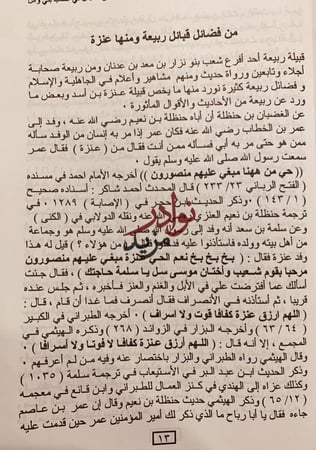 من فضائل قبائل ربيعة ومنها عنزة
قبيلة ربيعة أحد أفرع شعب بنو نزار بن معد بن عدنان ومن ربيعة صحابة
أجلاء وتابعين ورواة حديث ومنهم مشاهير وأعلام في الجاهلية والإسلام
وفضائل ربيعة كثيرة نورد منها ما يخص قبيلة عنزة بن أسد وبعض ما
ورد عن ربيعة من الأحاديث والأقوال المأثورة .
عن الغضبان بن حنظلة أن أباه حنظلة بن نعيم رضي الله عنه ، وفد إلى
عمر بن الخطاب رضي الله عنه فكان عمر إذا مر به إنسان من الوفد سأله
ممن هو حتى مر به أبي فسأله ممن أنت فقال من (عنزة) فقال عمر
سمعت رسول الله صلى الله عليه وسلم يقول .
((حي من ههنا مبغي عليهم منصورون)) أخرجه الإمام احمد في مسنده
(الفتح الرباني ٢٣/ ٢٣٣) قال المحدث أحمد شاكر : أسناده صحيح
(١٤٣/١) وذكر الحديث في (الإصابة ١٢٨٩) في
ترجمة حنظلة بن نعيم العنزي ونقله الدولابي في (الكنى)
وعن سلمة بن سعد أنه وفد إلى عليه وسلم هو وجماعة
من أهل بيته وولده فاستأذنوا عليه هؤلاء ؟ قيل له هذا
وفد عنزة فقال : (( بخ بخ بخ نعم الحي عنزة مبغي عليهم منصورون
مرحبا بقوم شعيب وأختان موسى سل يا سلمة حاجتك)) ، فقال جئت
أسألك عما أفترضت علي في الأبل والغنم والعنز فأخبره ، ثم جلس عنده
قريبا ، ثم أستأذنه في الأنصراف فقال أنصرف فما غدا أن قام ، قال :
((اللهم أرزق عنزة كفافا قوت ولا اسراف)) ، أخرجه الطبراني في الكبير
(٦٣/ ٦٤) وأخرجه البزار في الزوائد (٢٦٨) وذكره الهيثمي في
المجمع ، إلا أنه قال : (( اللهم أرزق عنزة كفافا لا قوتا ولا أسرافا)) .
وقال الهيثمي رواه الطبراني والبزار باختصار عنه وفيه من لم أعرفهم .
وذكر الحديث ابن عبد البر في الأستيعاب في ترجمة سلمة (١٠٣٥)
وكذلك عزاه إلى الهندي في كنز العمال للطبراني وابن قانع في معجمه
(١٢/ ٦٥) وذكر الهيثمي حديث حنظلة بن نعيم وقال إن عمر بن عاصم
جاءه فقال يا أبا رباح ما الذي ذكر لك أمير المؤمنين عمر حين قدمت عليه
١٣
نوادر
مريد